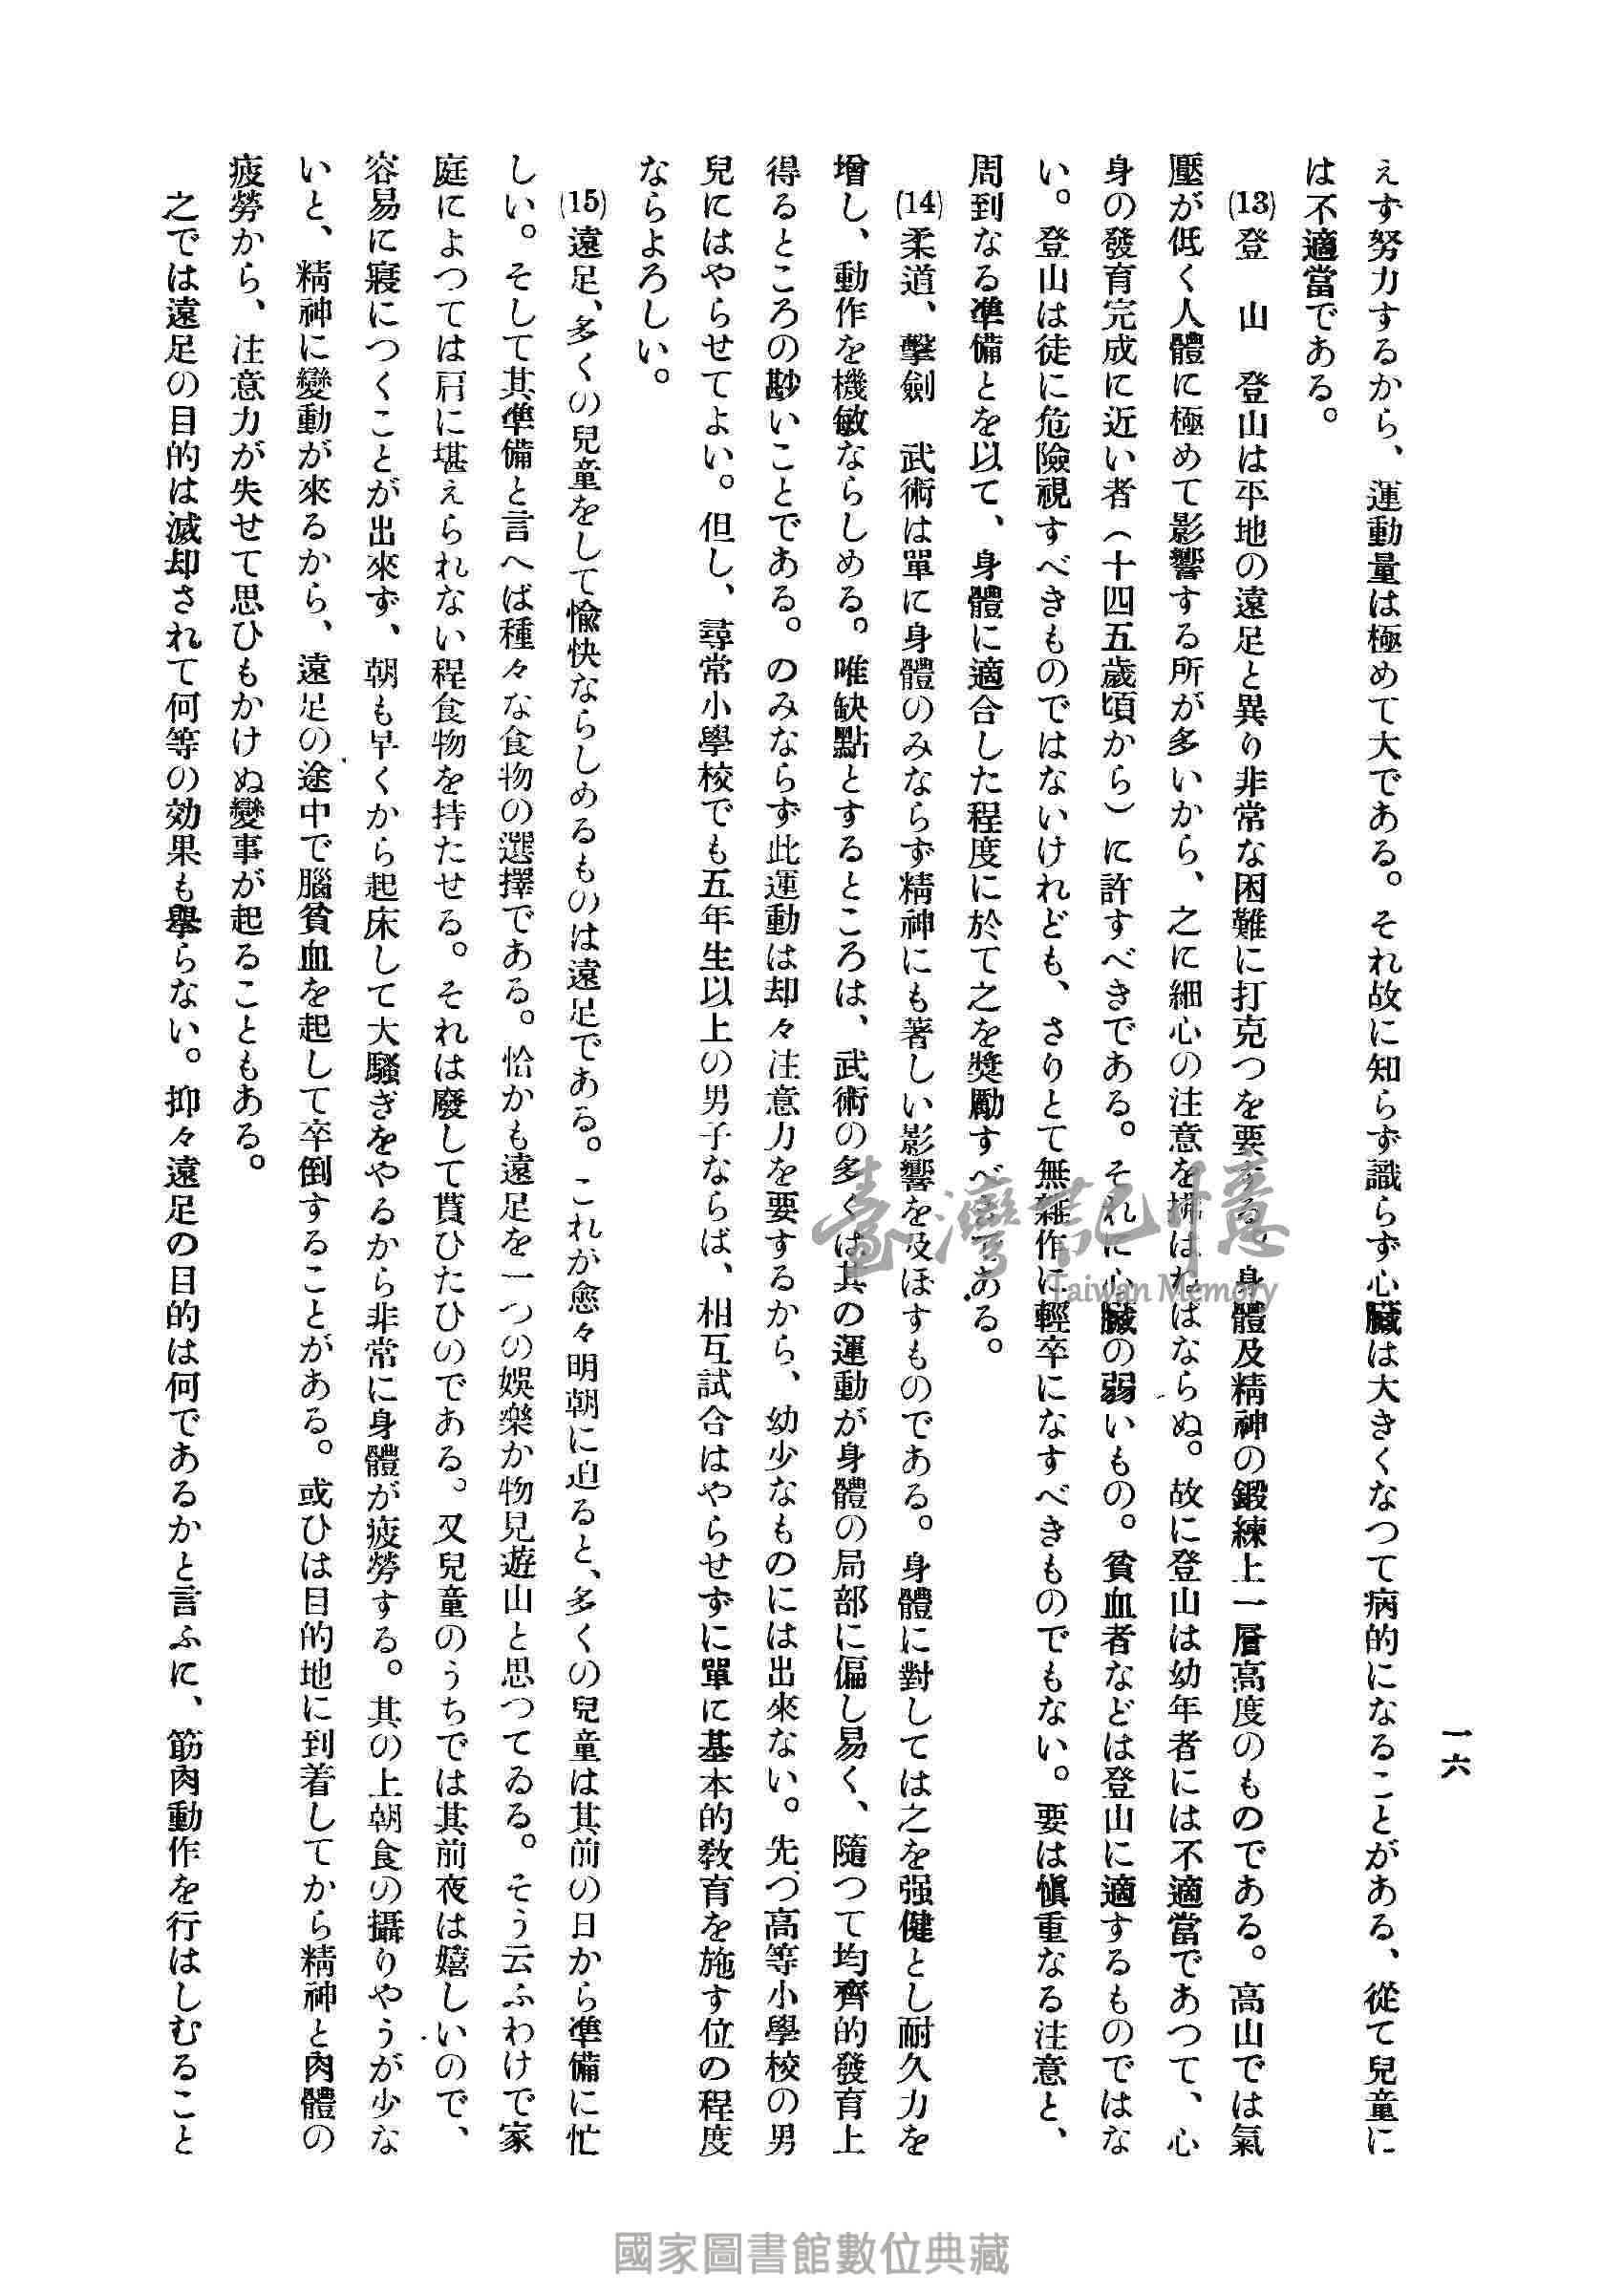 一六
えず努力するから、運動量は極めて大である。それ故に知らず識らず心臓は大きくなつて病的になることがある、從て兒童に
は不適當である。
(13)登　山　登山は平地の遠足と異り非常な困難に打克つを要する、身體及精神の鍛練上一層高度のものである。高山では氣
壓が低く人體に極めて影響する所が多いから、之に細心の注意を拂はねばならぬ。故に登山は幼年者には不適當であつて、心
身の發育完成に近い者（十四五歲頃から）に許すべきである。それに心臟の弱いもの。貧血者などは登山に適するものではな
い。登山は徒に危險視すべきものではないけれども、さりとて無雜作に輕卒になすべきものでもない。要は愼重なる注意と、
周到なる準備とを以て、身體に適合した程度に於て之を奬勵すべきである。
(14)柔道、擊劍　武術は單に身體のみならず精神にも著しい影響を及ぼすものである。身體に對しては之を强健とし耐久力を
增し、動作を機敏ならしめる。唯缺點とするところは、武術の多くは其の運動が身體の局部に偏し易く、隨つて均齊的發育上
得るところの尠いことである。のみならず此運動は却々注意力を要するから、幼少なものには出來ない。先づ高等小學校の男
兒にはやらせてよい。但し、尋常小學校でも五年生以上の男子ならば、相互試合はやらせずに單に基本的敎育を施す位の程度
ならよろしい。
(15)遠足、多くの兒童をして愉快ならしめるものは遠足である。これが愈々明朝に迫ると、多くの兒童は其前の日から準備に忙
しい。そして其準備と言へば種々な食物の選擇である。恰かも遠足を一つの娛樂か物見遊山と思つてゐる。そう云ふわけで家
庭によつては肩に堪えられない程食物を持たせる。それは廢して貰ひたひのである。又兒童のうちでは其前夜は嬉しいので、
容易に寢につくことが出來ず、朝も早くから起床して大騷ぎをやるから非常に身體が疲勞する。其の上朝食の攝りやうが少な
いと、精神に變動が來るから、遠足の途中で腦貧血を起して卒倒することがある。或ひは目的地に到着してから精神と肉體の
疲勞から、注意力が失せて思ひもかけぬ變事が起ることもある。
之では遠足の目的は滅却されて何等の効果も擧らない。抑々遠足の目的は何であるかと言ふに、筋肉動作を行はしむること
臺灣記憶
Taiwan Memory
國家圖書館數位典藏